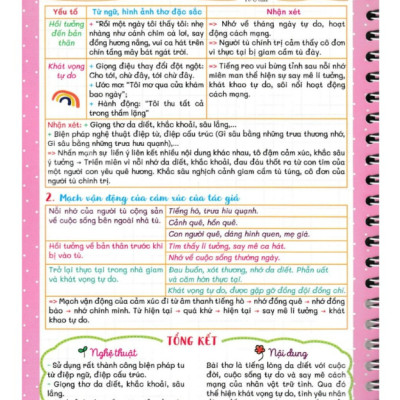 Yếu tố
Từ ngữ, hình ảnh thơ đặc sắc
Nhận xét
Hồi tưởng đến bản thân
+ "Rồi một ngày tôi thấy tôi: nhẹ nhàng như cánh chim cà lơi, say đồng hương nắng, vui ca hát trên chín tầng mây bát ngát trời.
=> Nhớ về tháng ngày tự do, hoạt động cách mạng.
=> Người tù chính trị cảm thấy cô đơn vì thực tại bị giam cầm tù đày.
Khát vọng tự do
+ Giọng điệu thay đổi đột ngột: Cho tới, chừ đây, tới chừ đây.
+ Ước mơ: "Tôi mơ qua cửa khám bao ngày";
+ Hành động: "Tôi thu tất cả trong thầm lặng"
=> Tiếng reo vui bừng tỉnh sau nỗi nhớ miên man thể hiện sự say mê lí tưởng, khát khao tự do, sôi nổi hoạt động cách mạng.
Nhận xét: + Giọng thơ da diết, khắc khoải, sâu lắng,...
+ Biện pháp nghệ thuật điệp từ, điệp cấu trúc (Gì sâu bằng những trưa thương nhớ, Gì sâu bằng những trưa hiu quạnh),...
=> Nhấn mạnh sự liên ý liên kết nhiều nội dung khác nhau, tô đậm cảm xúc, khắc sâu ý tưởng → Triền miên vì nỗi nhớ da diết, khắc khoải, đau đáu thốt ra từ con tim của một người con yêu quê hương. Khắc sâu nghịch cảnh giam cầm tù túng, cô đơn của người tù chính trị.
2. Mạch vận động của cảm xúc của tác giả
Nỗi nhớ của người tù cộng sản về cuộc sống bên ngoài nhà tù.
Tiếng hò, trưa hiu quạnh.
Cảnh quê, hồn quê.
Con người quê, dáng hình quen, mẹ già.
Hồi tưởng về bản thân trước khi bị vào tù.
Tìm thấy lí tưởng, say mê ca hát.
Nhớ về cuộc sống thường ngày.
Trở lại thực tại trong nhà giam và khát vọng tự do.
Đau buồn, xót thương, nhớ da diết. Phẫn uất và căm hờn thực tại.
Khát vọng tự do, được gặp gỡ đồng đội đồng chí.
=> Mạch vận động của cảm xúc đi từ âm thanh tiếng hò → nhớ đồng quê → nhớ đồng bào → nhớ chính mình. Từ hiện tại → quá khứ → hiện tại → say mê lí tưởng → khát khao tự do.
TỔNG KẾT
Nghệ thuật
- Sử dụng rất thành công biện pháp tu từ điệp ngữ, điệp cấu trúc.
- Giọng thơ da diết, khắc khoải, sâu lắng.
Nội dung
Bài thơ là tiếng lòng da diết với cuộc đời, cuộc sống tự do và say mê cách mạng của nhân vật trữ tình. Qua đó